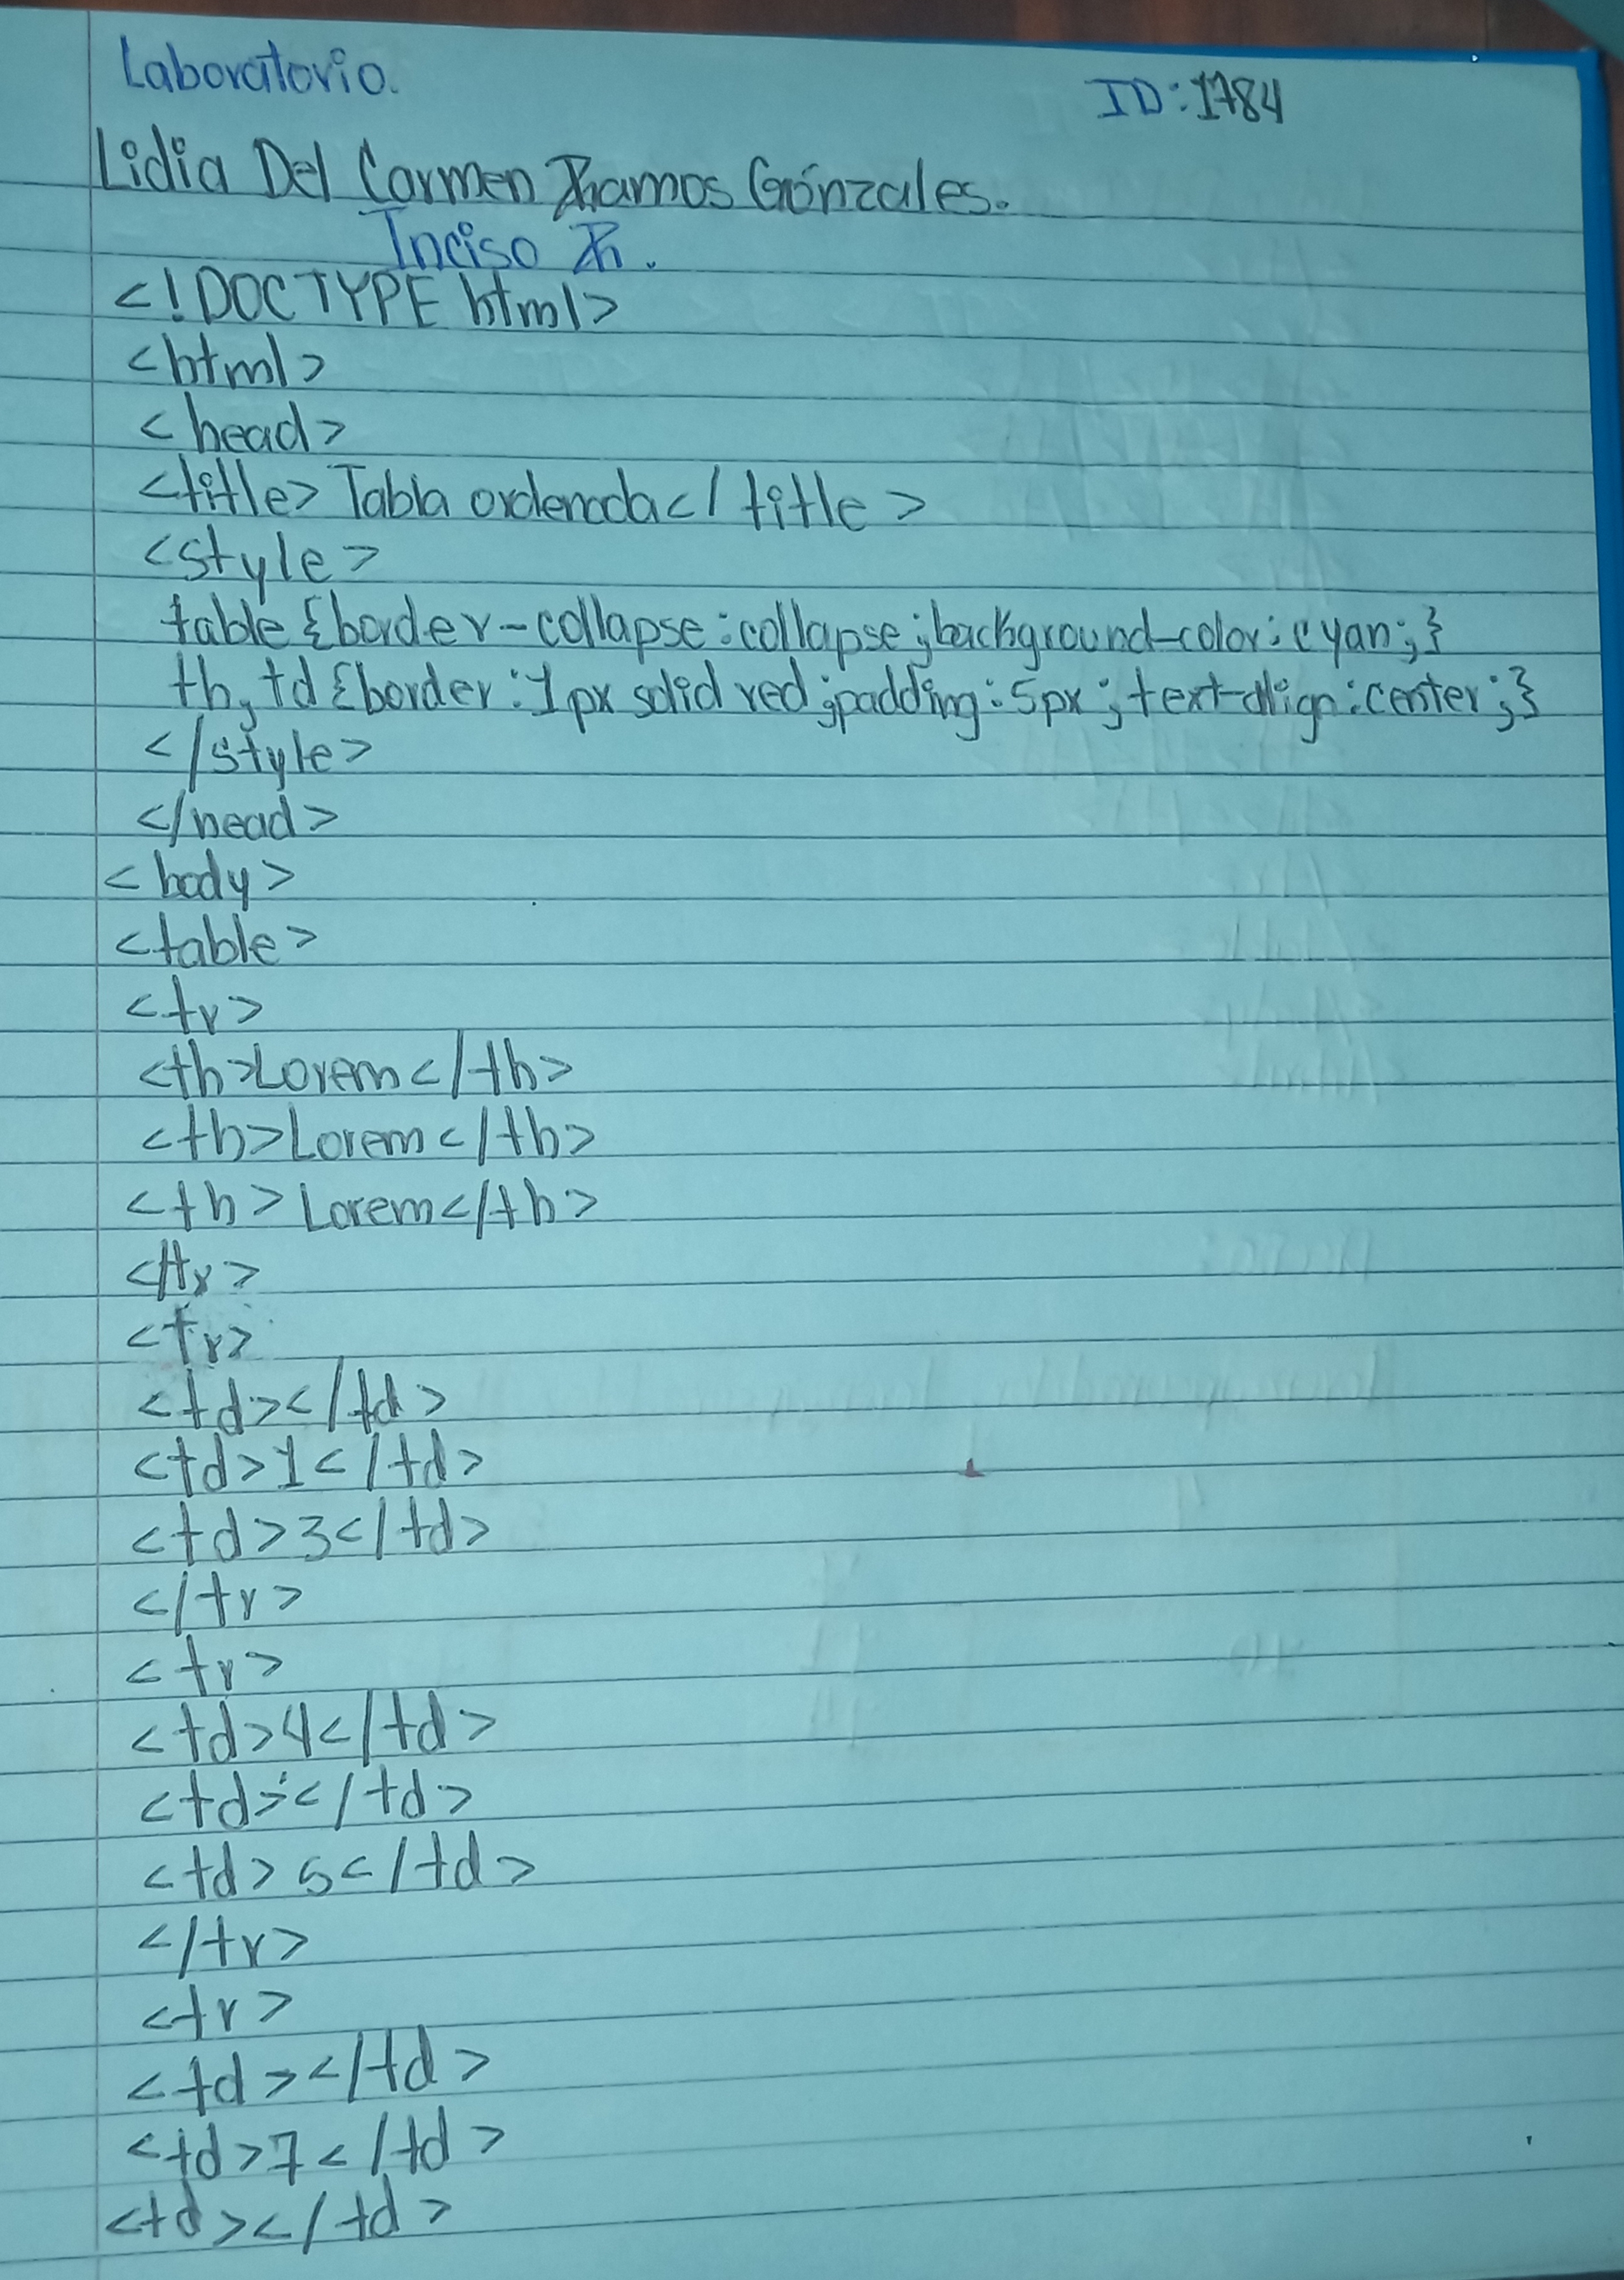 Laboratorio.
ID:1784
Lidia Del Carmen Ramos Gónzales.
Inciso R.
<!DOCTYPE html>
<html>
<head>
<title> Tabla ordenada</title>
<style>
table{border-collapse:collapse;background-color:cyan;}
th,td{border:1px solid red;padding:5px;text-align:center;}
</style>
</head>
<body>
<table>
<tr>
<th>Lorem</th>
<th>Lorem</th>
<th>Lorem</th>
</tr>
<tr>
<td></td>
<td>1</td>
<td>3</td>
</tr>
<tr>
<td>4</td>
<td></td>
<td>5</td>
</tr>
<tr>
<td></td>
<td>7</td>
<td></td>